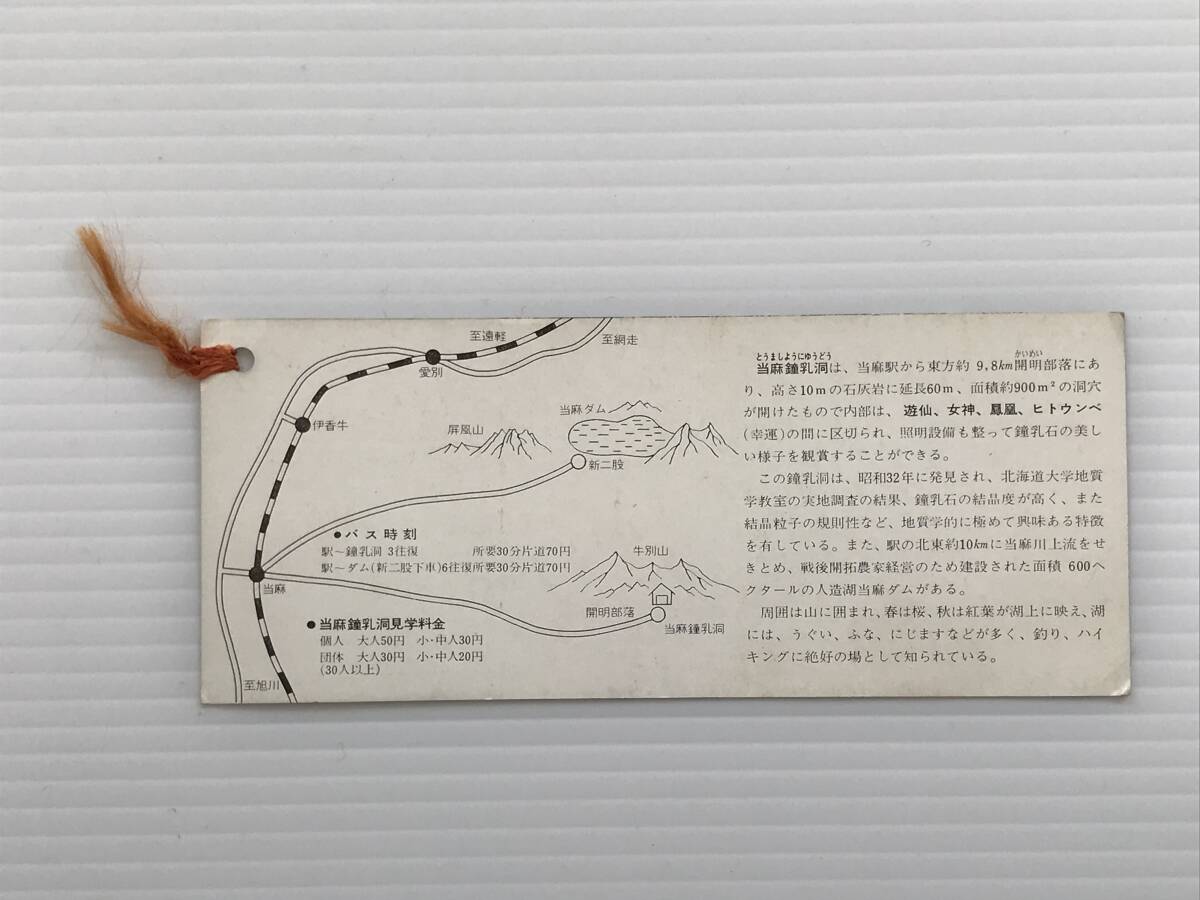 至遠軽
至網走
愛別
伊香牛
当麻ダム
屏風山
新二股
●バス時刻
駅～鐘乳洞 3往復 所要30分片道70円
駅～ダム(新二股下車)6往復所要30分片道70円
牛別山
当麻
開明部落
当麻鐘乳洞
●当麻鐘乳洞見学料金
個人 大人50円 小・中人30円
団体 大人30円 小・中人20円
(30人以上)
至旭川
とうましようにゆうどう かいめい
当麻鐘乳洞は、当麻駅から東方約 9,8km開明部落にあ
り、高さ10mの石灰岩に延長60m、面積約900m²の洞穴
が開けたもので内部は、遊仙、女神、鳳凰、ヒトウンペ
(幸運)の間に区切られ、照明設備も整って鐘乳石の美し
い様子を観賞することができる。
この鐘乳洞は、昭和32年に発見され、北海道大学地質
学教室の実地調査の結果、鐘乳石の結晶度が高く、また
結晶粒子の規則性など、地質学的に極めて興味ある特徴
を有している。また、駅の北東約10kmに当麻川上流をせ
きとめ、戦後開拓農家経営のため建設された面積 600ヘ
クタールの人造湖当麻ダムがある。
周囲は山に囲まれ、春は桜、秋は紅葉が湖上に映え、湖
には、うぐい、ふな、にじますなどが多く、釣り、ハイ
キングに絶好の場として知られている。